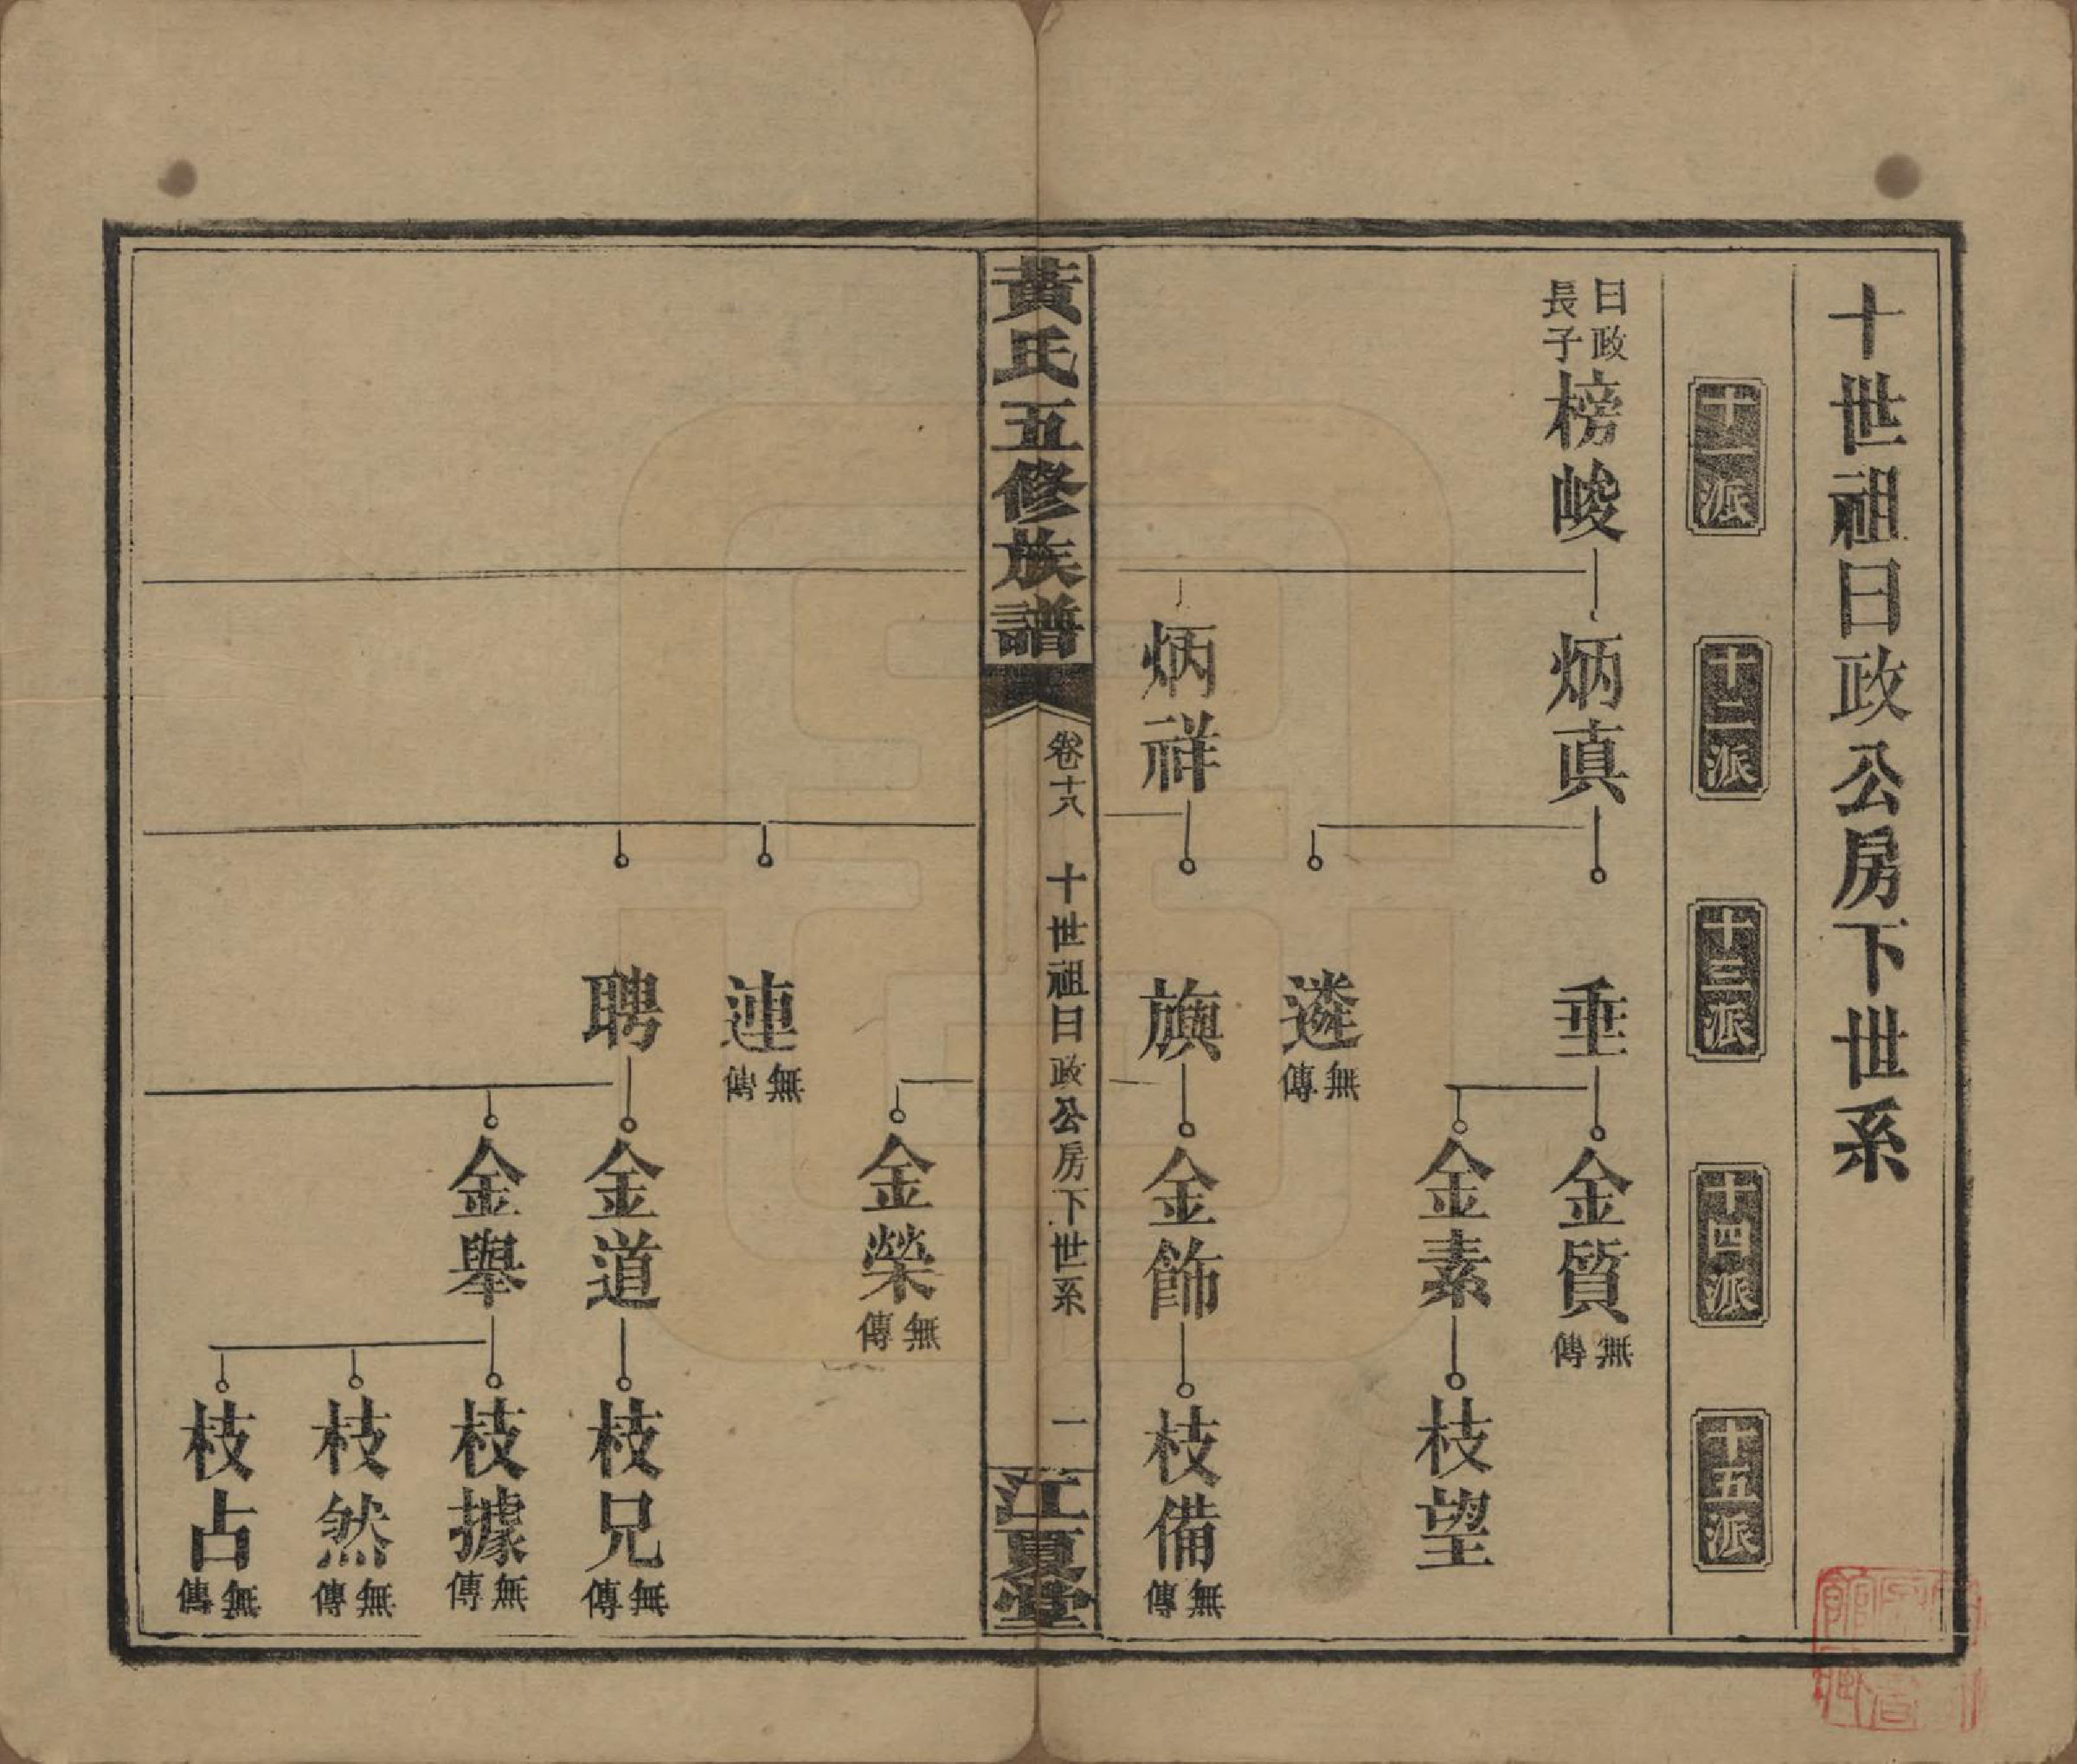 十世祖曰政公房下世系
十一派
十二派
十三派
十四派
十五派
曰政長子
榜峻
炳真
垂
金質
無傳
金素
枝望
遴
無傳
炳祥
旗
金飾
枝備
無傳
黃氏五修族譜
卷十八
十世祖曰政公房下世系
一
江夏堂
金榮
無傳
連
無傳
聘
金道
枝兄
無傳
金舉
枝據
無傳
枝然
無傳
枝占
無傳